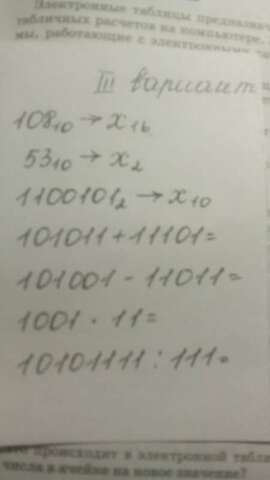 Электронные таблицы предназнач
табличных расчетов на компьютере.
мы, работающие с электронными
III вариант
108₁₀ → x₁₆
53₁₀ → x₂
1100101₂ → x₁₀
101011+11101=
101001-11011=
1001 · 11=
10101111 : 111=
происходит в электронной табли
числа в ячейке на новое значение?